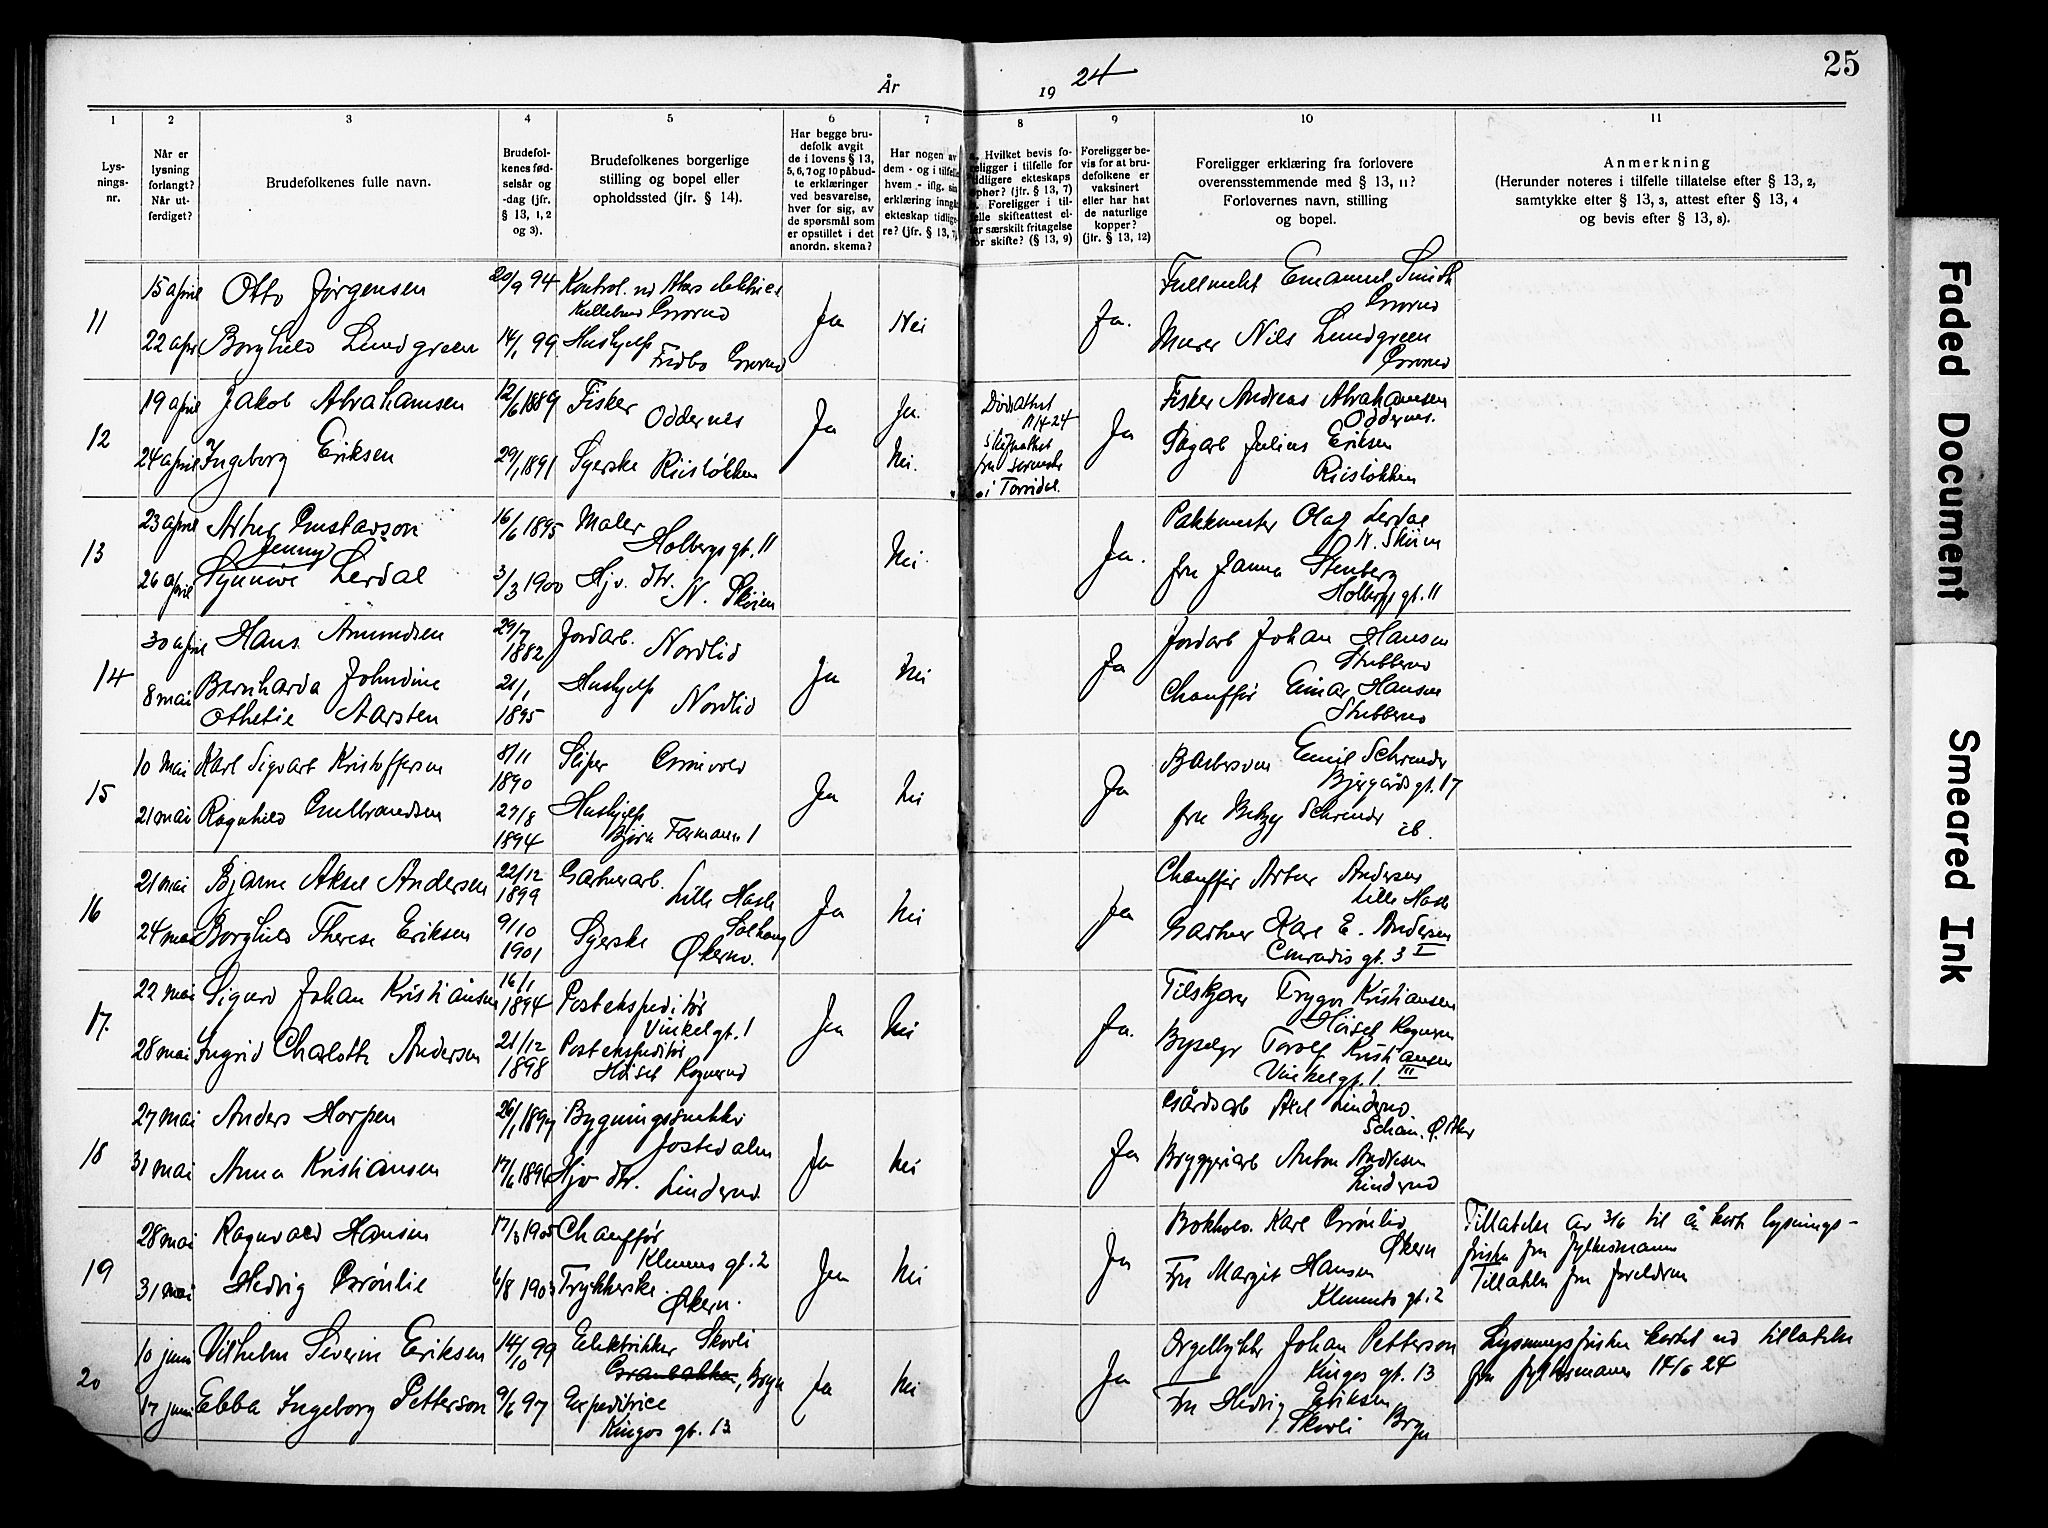 25
År 1924
1 2 3 4 5 6 7 8 9 10 11
Lysningsnr.
Når er lysning forlangt? Når utferdiget?
Brudefolkenes fulle navn.
Brudefolkenes fødselsår og -dag (jfr. § 13, 1, 2 og 3).
Brudefolkenes borgerlige stilling og bopel eller opholdssted (jfr. § 14).
Har begge brudefolk avgit de i lovens § 13, 5, 6, 7 og 10 påbudte erklæringer ved besvarelse, hver for sig, av de spørsmål som er opstillet i det anordn. skema?
Har nogen av dem - og i tilfelle hvem - iflg. sin erklæring inngått ekteskap tidligere? (jfr. § 13, 7)
Hvilket bevis foreligger i tilfelle for tidligere ekteskaps ophør? (jfr. § 13, 7)
Foreligger i tilfelle skifteattest eller særskilt fritagelse for skifte? (§ 13, 9)
Foreligger bevis for at brudefolkene er vaksinert eller har hat de naturlige kopper? (jfr. § 13, 12)
Foreligger erklæring fra forlovere overensstemmende med § 13, 11? Forlovernes navn, stilling og bopel.
Anmerkning
(Herunder noteres i tilfelle tillatelse efter § 13, 2, samtykke efter § 13, 3, attest efter § 13, 4 og bevis efter § 13, 8).
11
15 april Otto Jørgensen 20/9 94 Kontrol. Grorud
22 apr Borghild Lundgreen 14/1 99 Hushjelp Fridbo Grorud
Ja Nei Ja.
Fullmekt Emanuel Smith Grorud
Murer Nils Lundgreen Grorud
12
19 april Jakob Abrahamsen 12/6 1889 Fisker Oddernes
24 april Ingeborg Eriksen 29/1 1891 Syerske Riisløkken
Ja Ja. Nei.
Dødsattest
i Torridal.
Ja
Fisker Andreas Abrahamsen Oddernes.
Sagarb Julius Eriksen Riisløkken
13
23 april Artur Gustavson 16/6 1895 Maler Holbergs gt. 11
Jenny
26 april Synnive Lerdal 3/3 1900 Hjv. dtr. N. Skøien
Nei. Ja.
Pakkmester Olaf Lerdal N. Skøien
fru Janna Stenberg Holbergs gt. 11
14
30 april Hans Amundsen 29/7 1882 Jordarb. Nordlid
8 mai Bernharda Johndine Othelie Aarsten 21/1 1895 Hushjelp Nordlid
Ja Nei Ja
Jordarb Johan Hansen Stubberud
Chauffør Einar Hansen Stubberud
15
10 mai Karl Sigvart Kristoffersen 8/11 1890 Sliper Grinivold
21 mai Ragnhild Gulbrandsen 27/8 1894 Hushjelp Bjørn Farmanns 1
Ja Nei Ja
Emil Schrøder Bjergårds gt. 17
fru Betzy Schrøder ib.
16
21 mai Bjarne Aksel Andersen 22/12 1899 Gartnerarb. Lille Hasle
24 mai Borghild Therese Eriksen 9/10 1901 Syerske Solhaug Økern.
Ja Nei Ja
Chauffør Artur Andersen Lille Hasle
Gartner Karl E. Andersen Conradis gt. 3 I
17.
22 mai Sigurd Johan Kristiansen 16/1 1894 Postekspeditør Vinkelgt. 1
28 mai Ingrid Charlotte Andersen 21/12 1898 Postekspeditør Høisel Rognerud
Ja Nei Ja.
Tilskjærer Trygve Kristiansen Høisel Rognerud
Torolf Kristiansen Vinkelgt. 1. III
18
27 mai Anders Horpen 26/1 1894 Bygningssnekker Jostedalen
31 mai Anna Kristiansen 17/6 1896 Hjv dtr. Linderud.
Ja Nei Ja
Gårdsarb Linderud. Ø. Aker
Bryggeriarb Anton Andresen Linderud
19
28 mai Ragnvald Hansen 17/3 1905 Chauffør Klemens gt. 2
31 mai Hedvig Grønlie 4/8 1903 Trykkerske. Økern.
Ja Nei Ja
Bokholo. Karl Grønlie Økern
Fru Margit Hansen Klements gt. 2
Tillatelse av 3/6 til å korte lysningsfristen fra fylkesmannen
Tillatelse fra foreldrene
20
10 juni Vilhelm Severin Eriksen 14/10 99 Elektrikker Skovli Granbakken, Bryn
17 juni Ebba Ingeborg Petterson 9/6 97 Expeditrice Kingos gt. 13
Ja Nei Ja
Orgelbygger Johan Petterson Kingos gt. 13
Fru Hedvig Eriksen Skovli Bryn
Lysningsfristen kortet ved tillatelse fra fylkesmannen 14/6 24
Faded Document
Smeared Ink